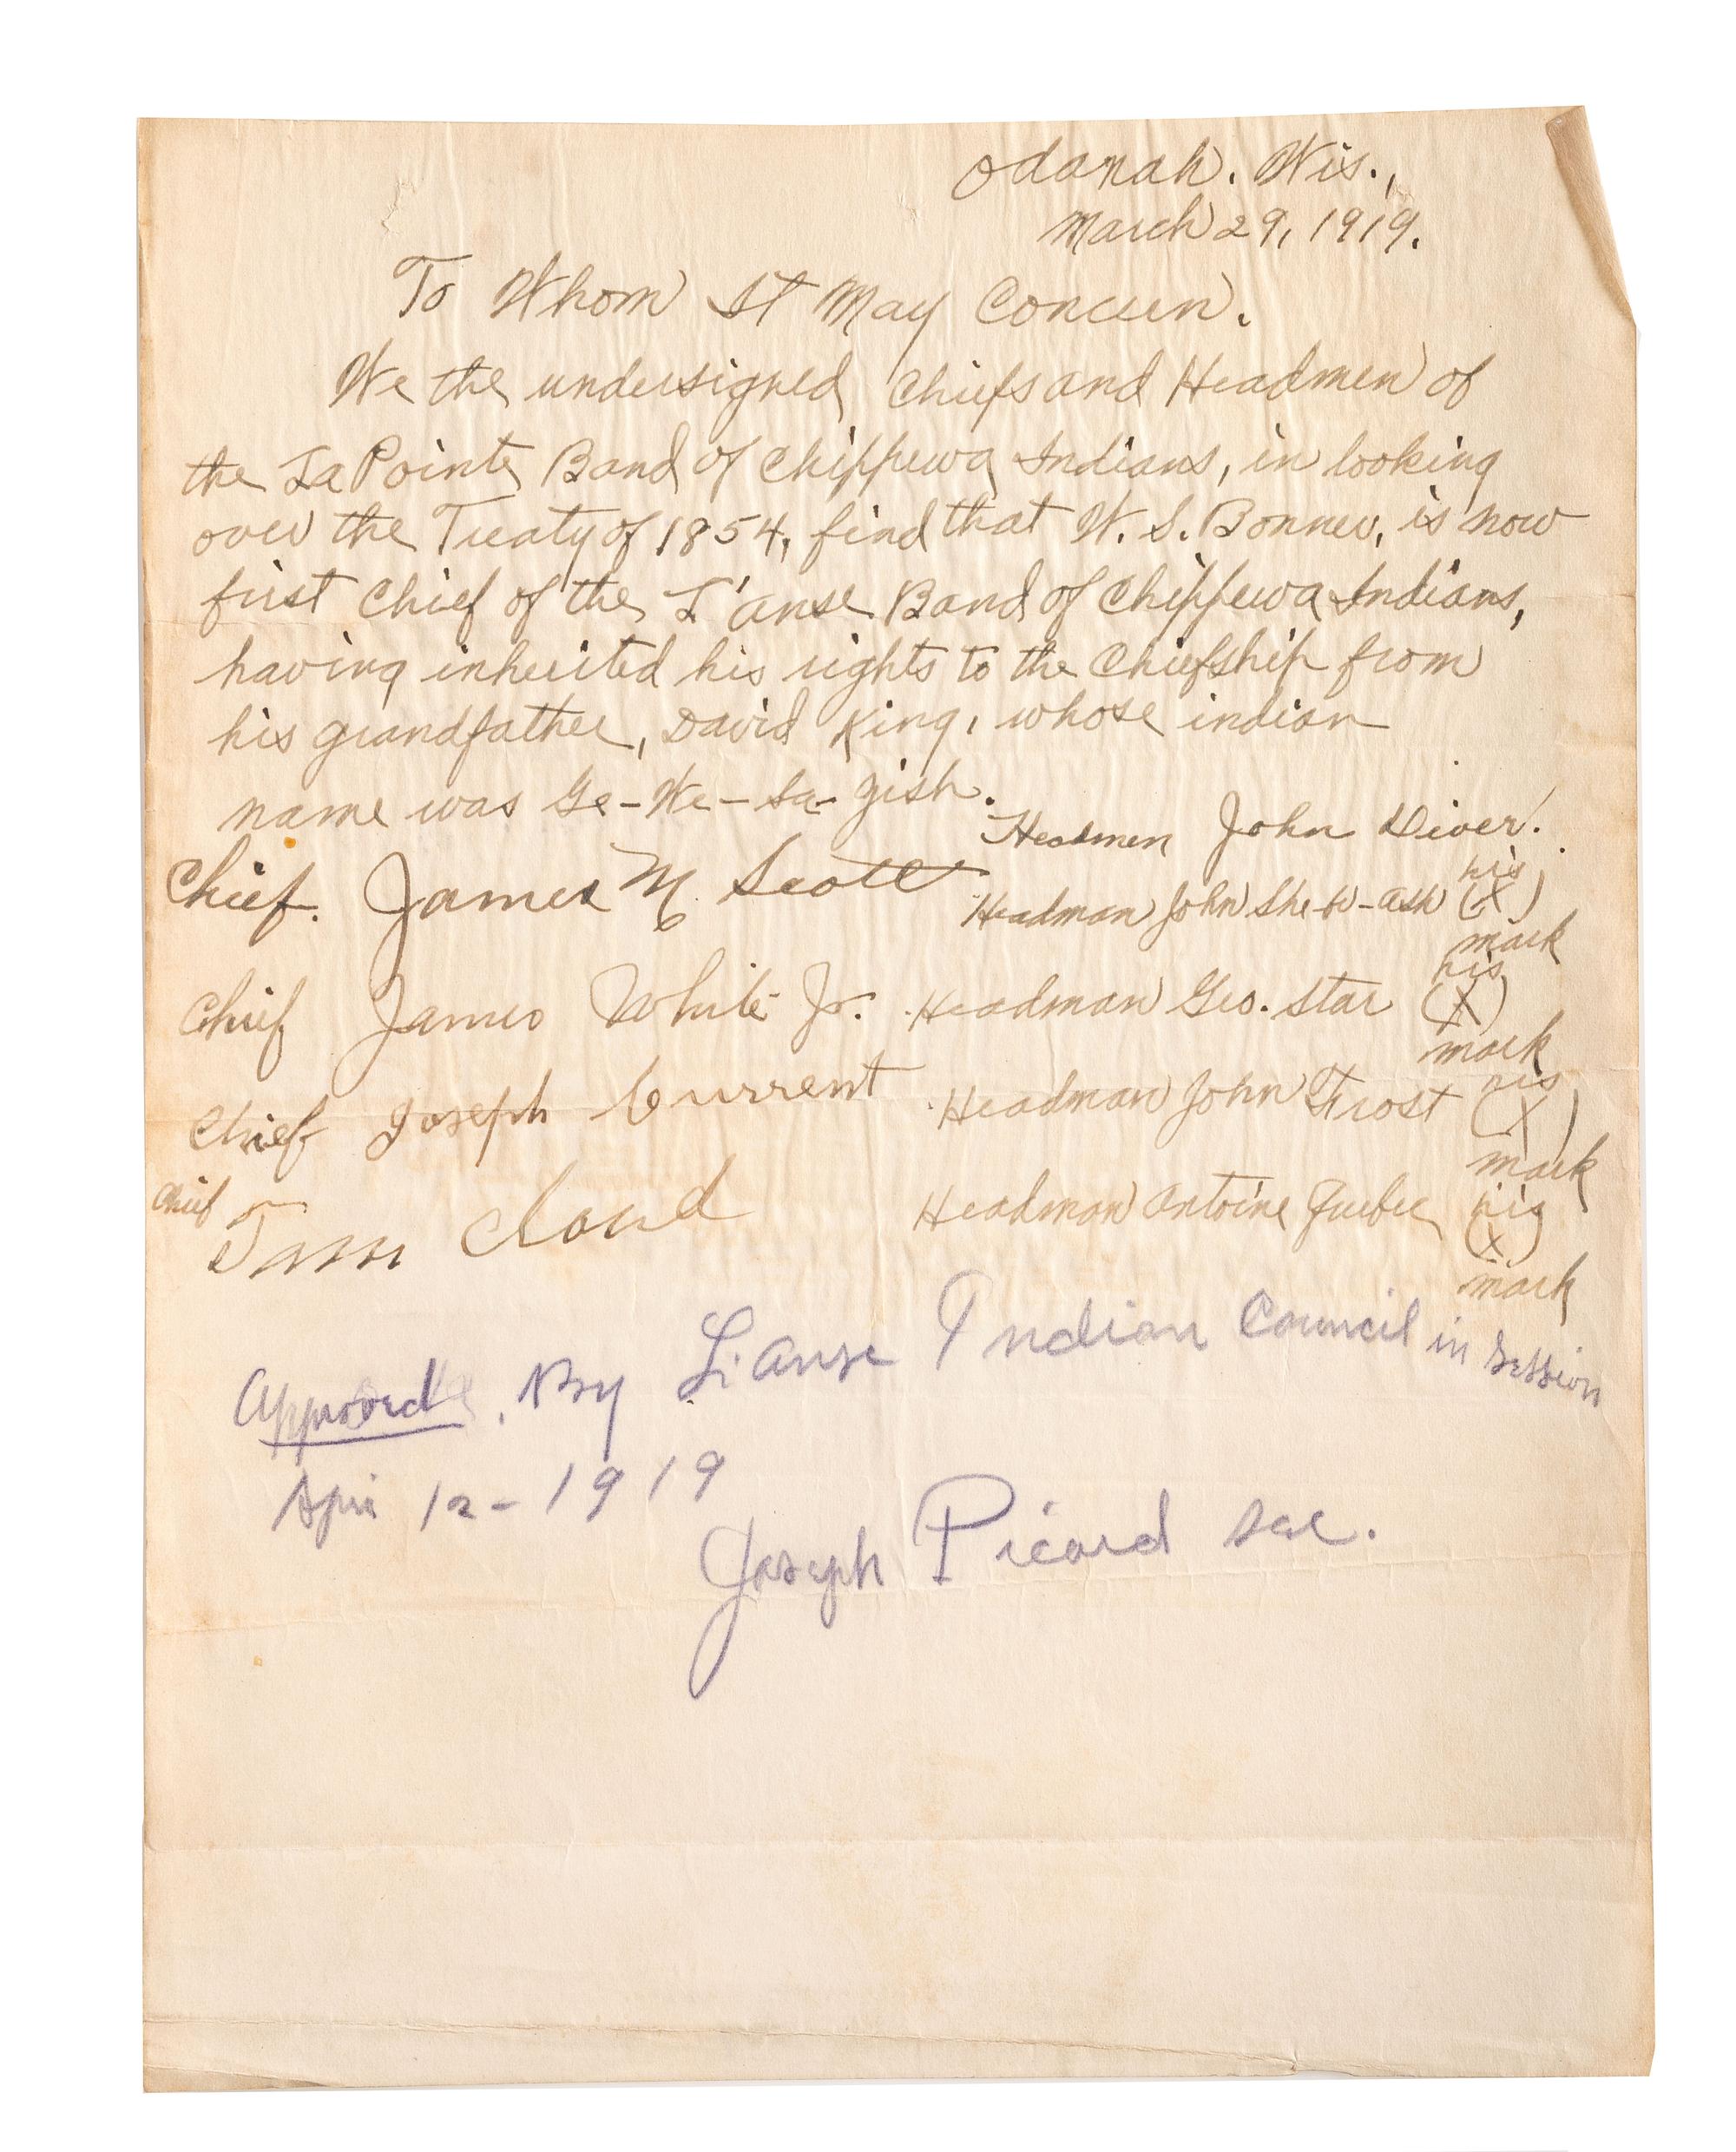 Odanah. Wis.,
March 29, 1919.
To Whom It May Concern.
We the undersigned Chiefs and Headmen of
the La Pointe Band of Chippewa Indians, in looking
over the Treaty of 1854, find that W. S. Bonner, is now
first Chief of the L'anse Band of Chippewa Indians,
having inherited his rights to the Chiefship from
his grandfather, David King, whose indian
name was Ge-We-Sa-gish.
Headmen John Diver.
Chief. James M. Scott
Headman John She-w-ash his (X) mark
Chief James White Jr.
Headman Geo. Star his (X) mark
Chief Joseph Current
Headman John Frost his (X) mark
Chief Tom Cloud
Headman Antoine Quebec his (X) mark
Approved. By L'anse Indian Council in Session
Apri 12-1919
Joseph Picard sec.